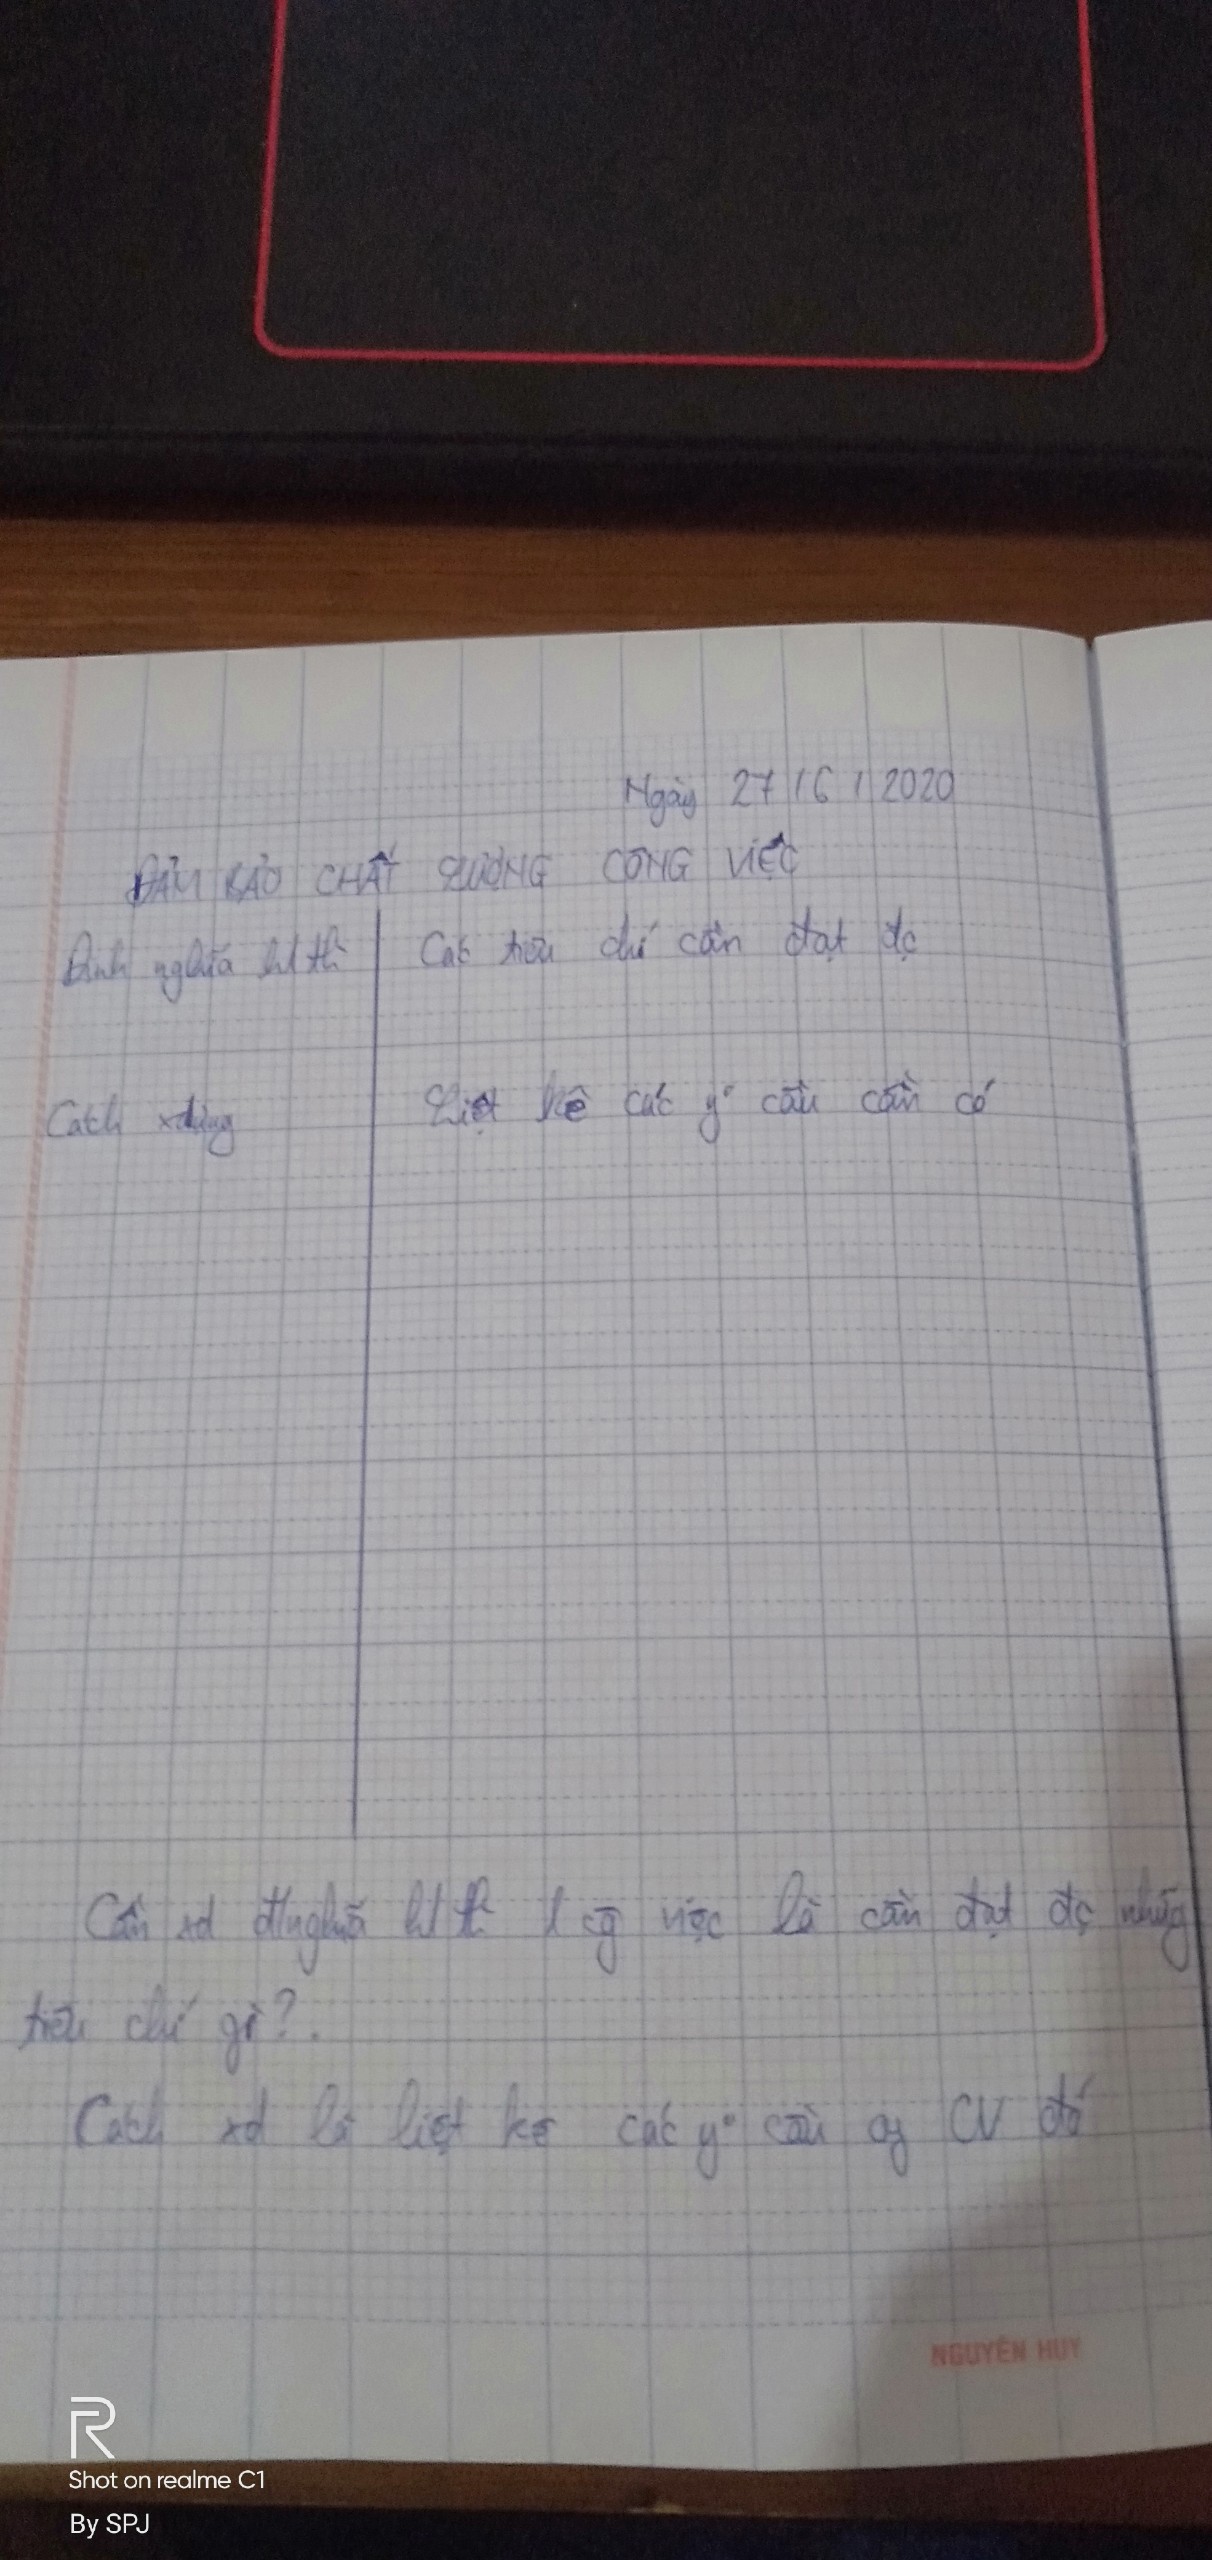 Ngày 27/6/2020
ĐẢM BẢO CHẤT LƯỢNG CÔNG VIỆC
Định nghĩa ht th | Các tiêu chí cần đạt đc
Cách xdựng | Liệt kê các y° cầu cần có
Cần xd đ/nghĩa ht th 1 cg̃ việc là cần đạt đc những
tiêu chí gì?.
Cách xd là liệt kê các y° cầu of CV đó
NGUYÊN HUY
R
Shot on realme C1
By SPJ